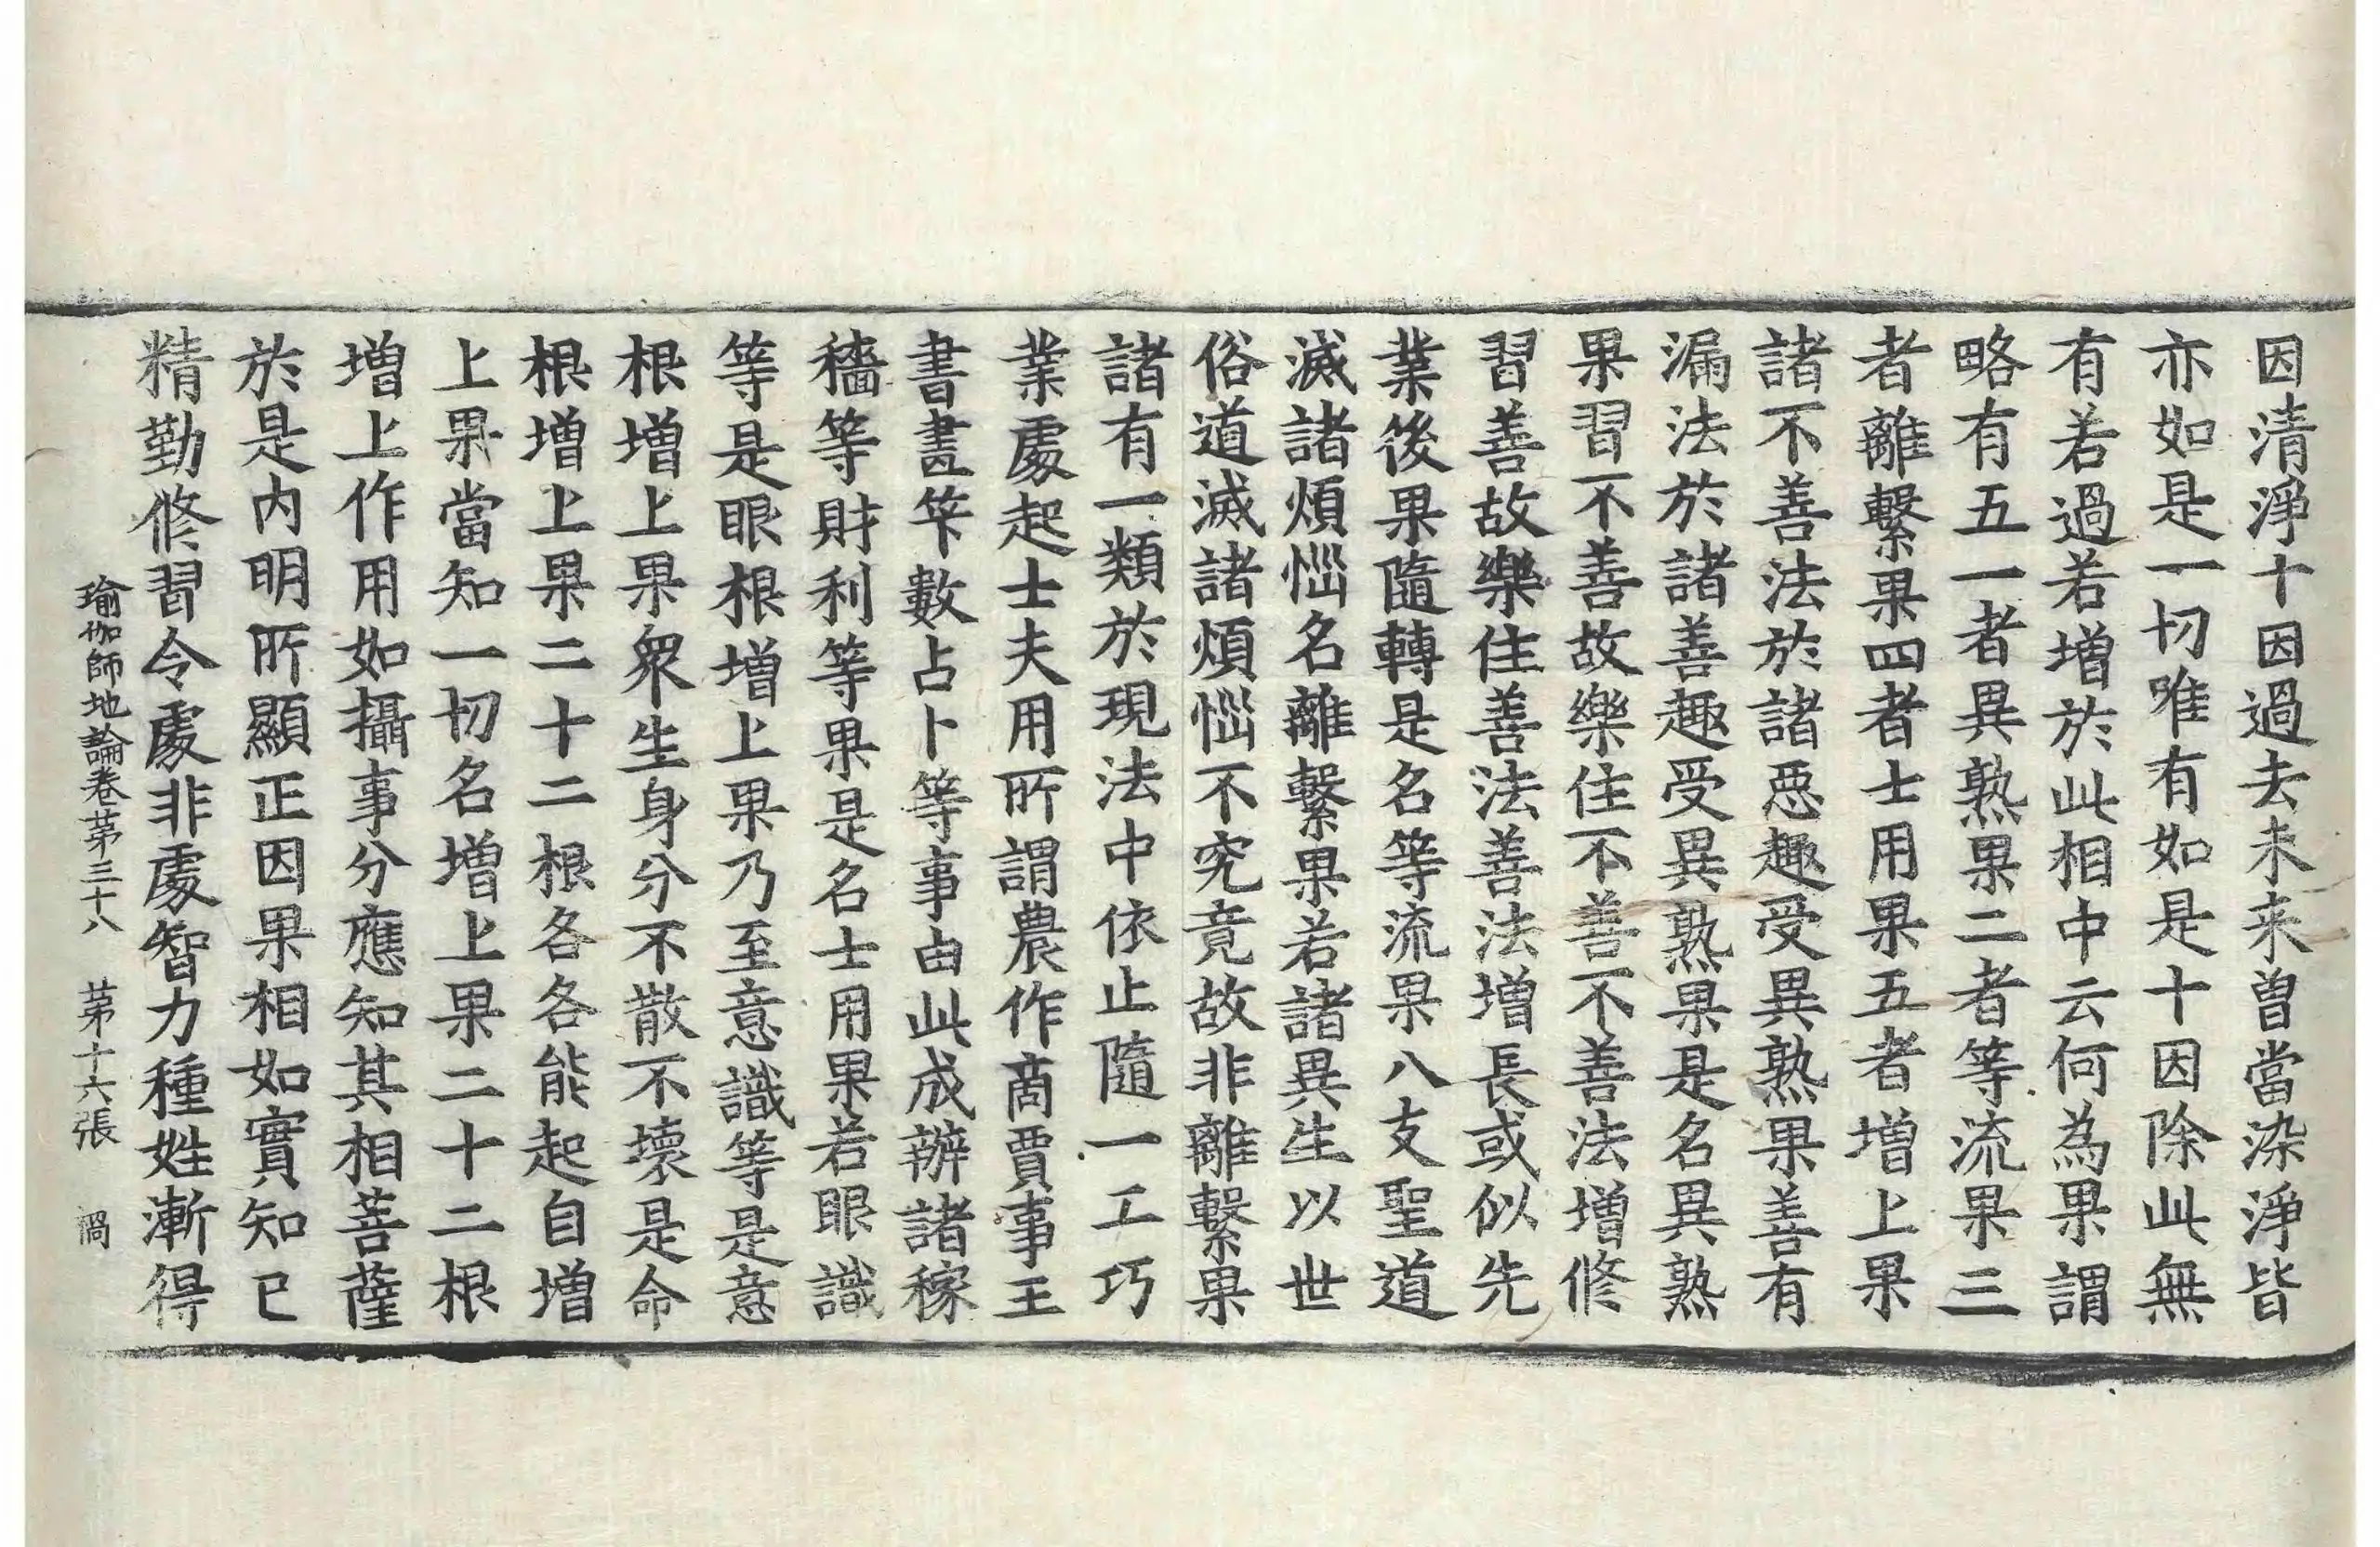 因清淨十因過去未来曽當染淨皆
亦如是一切唯有如是十因除此無
有若過若增於此相中云何為果謂
略有五一者異熟果二者等流果三
者離繫果四者士用果五者增上果
諸不善法於諸惡趣受異熟果善有
漏法於諸善趣受異熟果是名異熟
果習不善故樂住不善不善法增修
習善故樂住善法善法增長或似先
業後果隨轉是名等流果八支聖道
滅諸煩惱名離繫果若諸異生以世
俗道滅諸煩惱不究竟故非離繫果
諸有一類於現法中依止隨一工巧
業處起士夫用所謂農作商賈事王
書畫筭數占卜等事由此成辦諸稼
穡等財利等果是名士用果若眼識
等是眼根增上果乃至意識等是意
根增上果眾生身分不散不壞是命
根增上果二十二根各各能起自增
上果當知一切名增上果二十二根
增上作用如攝事分應知其相菩薩
於是内明所顯正因果相如實知已
精勤修習令處非處智力種姓漸得
瑜伽師地論卷苐三十八 苐十六張 禍